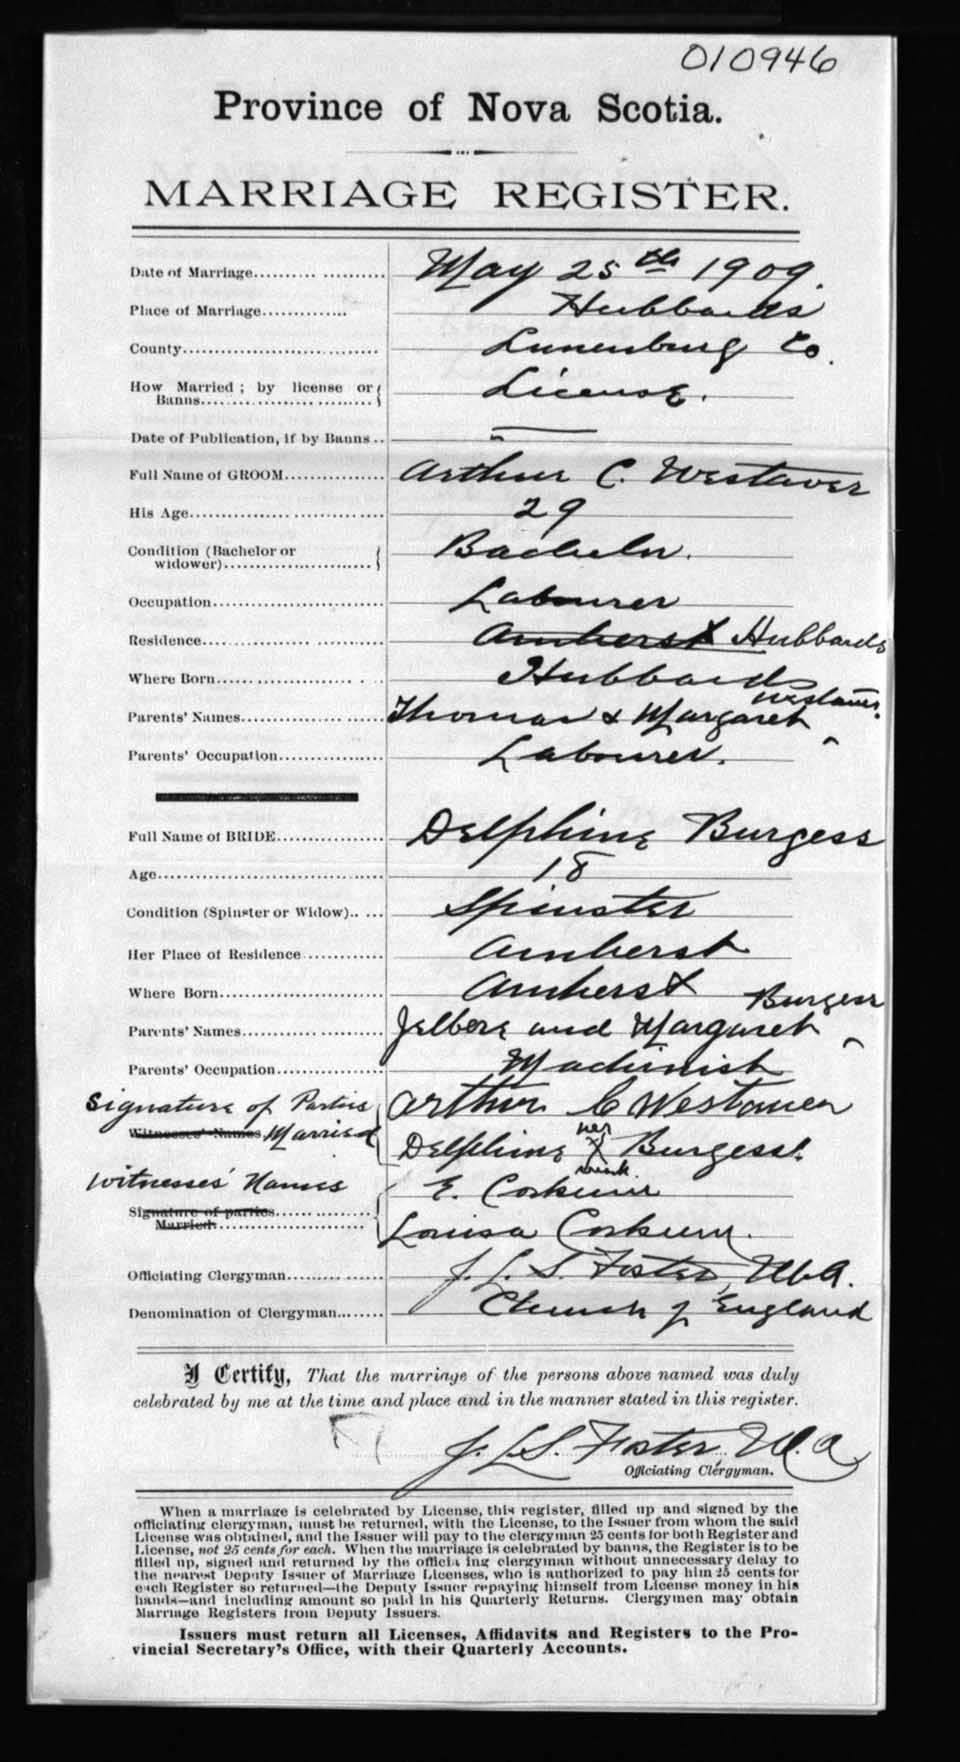 010946
Province of Nova Scotia.
MARRIAGE REGISTER.
Date of Marriage.......... ........... May 25th 1909.
Place of Marriage.............. Hubbards
County................................ Lunenburg Co.
How Married; by license or License.
Banns............................
Date of Publication, if by Banns .. —
Full Name of GROOM................ Arthur C. Westaver
His Age............................... 29
Condition (Bachelor or Bachelor.
widower)........................
Occupation............................ Labourer
Residence............................. Amherst Hubbards
Where Born........................... Hubbards
Westaver.
Parents' Names....................... Thomas & Margaret ^
Parents' Occupation................. Labourer.
Full Name of BRIDE................. Delphine Burgess
Age.................................... 18
Condition (Spinster or Widow).. .... Spinster
Her Place of Residence............. Amherst
Where Born.......................... Amherst
Burgess
Parents' Names...................... and Margaret ^
Parents' Occupation................ Machinist
Signature of Parties Arthur C Westaver
Witnesses' Names Married her
Delphine X Burgess.
mark
Witnesses' Names E. Corkum
Signature of parties..............
Married......................... Louisa Corkum.
Officiating Clergyman............... J. L. S. Foster, M.A.
Denomination of Clergyman........ Church of England
I Certify, That the marriage of the persons above named was duly
celebrated by me at the time and place and in the manner stated in this register.
J. L. S. Foster, M. A
Officiating Clergyman.
When a marriage is celebrated by License, this register, filled up and signed by the
officiating clergyman, must be returned, with the License, to the Issuer from whom the said
License was obtained, and the Issuer will pay to the clergyman 25 cents for both Register and
License, not 25 cents for each. When the marriage is celebrated by banns, the Register is to be
filled up, signed and returned by the officia ing clergyman without unnecessary delay to
the nearest Deputy Issuer of Marriage Licenses, who is authorized to pay him 25 cents for
each Register so returned—the Deputy Issuer repaying himself from License money in his
hands—and including amount so paid in his Quarterly Returns. Clergymen may obtain
Marriage Registers from Deputy Issuers.
Issuers must return all Licenses, Affidavits and Registers to the Pro-
vincial Secretary's Office, with their Quarterly Accounts.